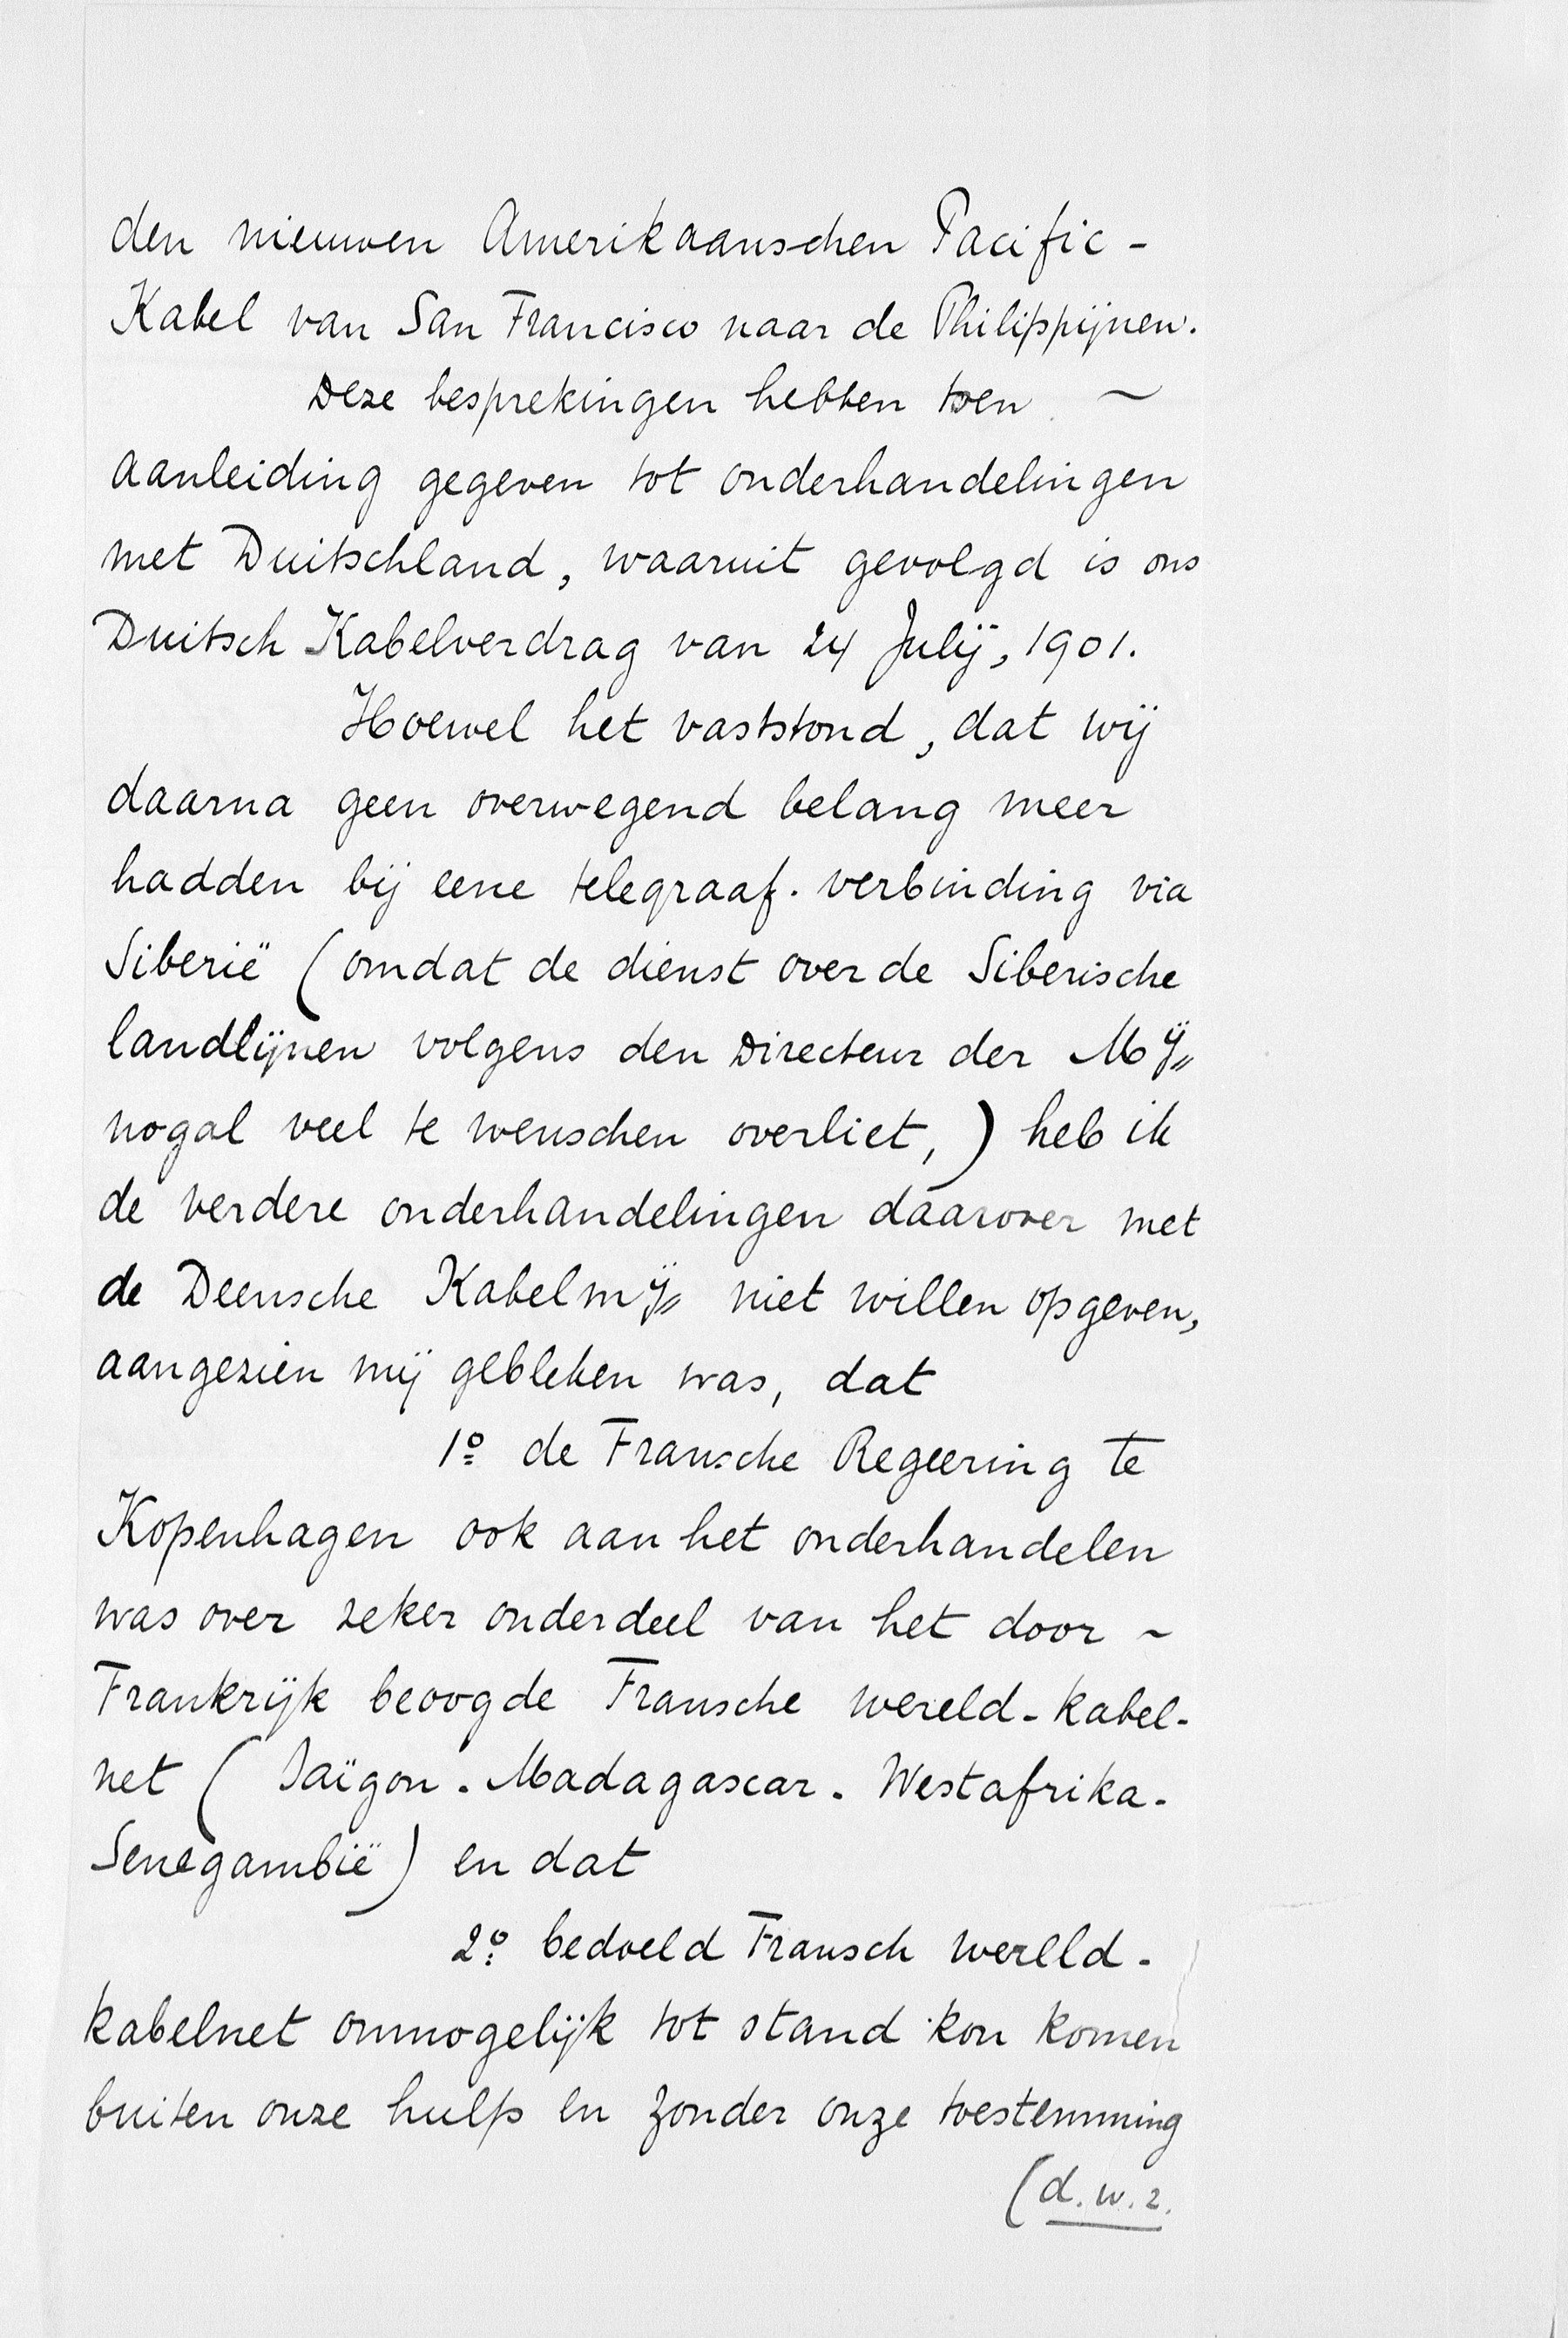 den nieuwen Amerikaanschen Pacific-
Kabel van San Francisco naar de Philippijnen.
Deze besprekingen hebben toen ~
aanleiding gegeven tot onderhandelingen
met Duitschland, waaruit gevolgd is ons
Duitsch Kabelverdrag van 24 Julij, 1901.
Hoewel het vaststond, dat wij
daarna geen overwegend belang meer
hadden bij eene telegraaf-verbinding via
Siberië (omdat de dienst over de Siberische
landlijnen volgens den Directeur der Mij„
nogal veel te wenschen overliet,) heb ik
de verdere onderhandelingen daarover met
de Deensche Kabelmij„ niet willen opgeven,
aangezien mij gebleken was, dat
1º de Fransche Regeering te
Kopenhagen ook aan het onderhandelen
was over zeker onderdeel van het door ~
Frankrijk beoogde Fransche wereld-kabel-
net (Saïgon-Madagascar-Westafrika-
Senegambië) en dat
2º bedoeld Fransch wereld-
kabelnet onmogelijk tot stand kon komen
buiten onze hulp en zonder onze toestemming
(d.w.z.